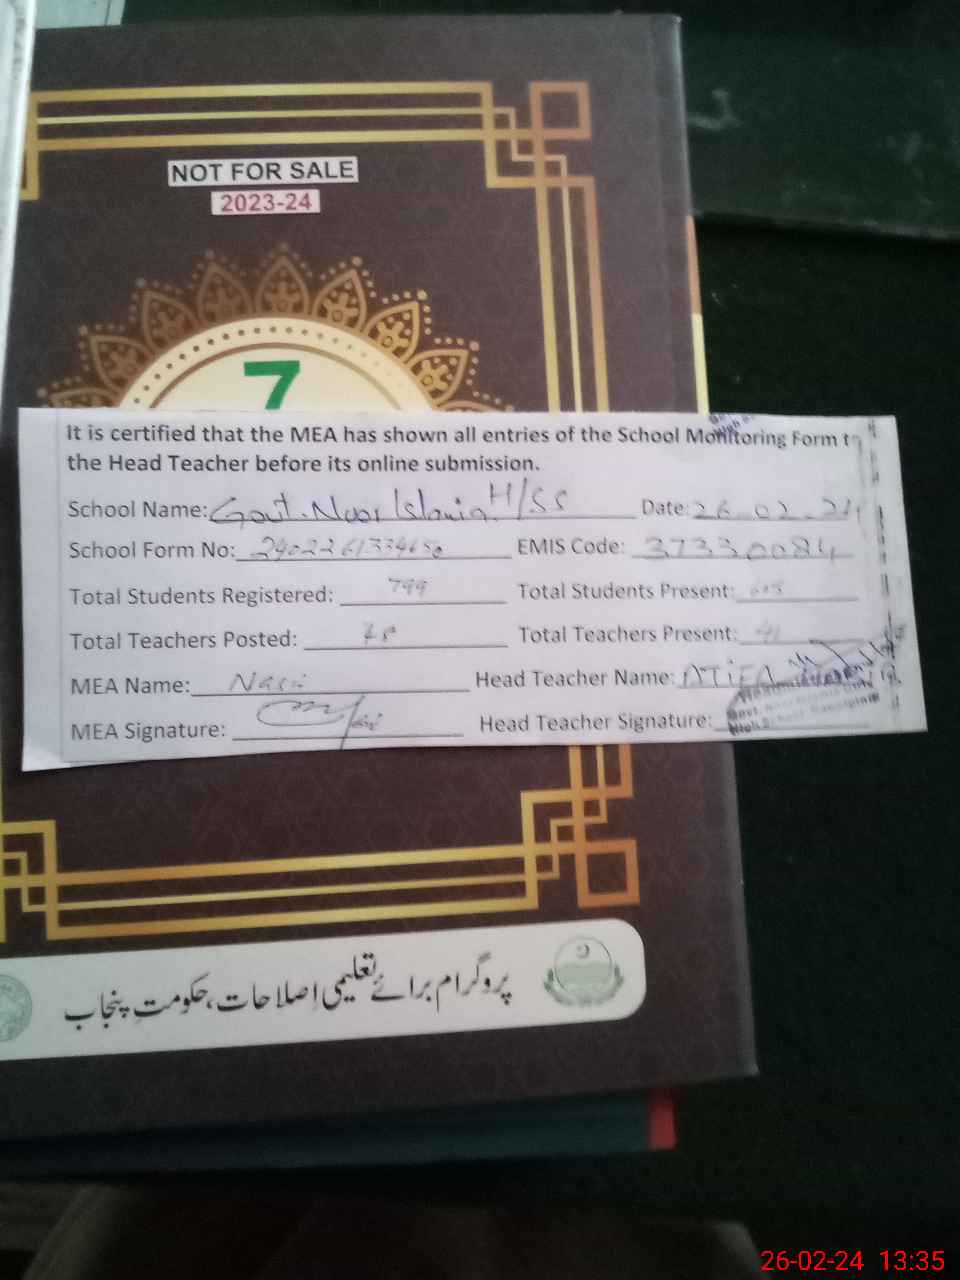 NOT FOR SALE
2023-24
7
It is certified that the MEA has shown all entries of the School Monitoring Form to
the Head Teacher before its online submission.
School Name: Govt. Noor Islamia H/SS Date: 26.02.24
School Form No: EMIS Code: 37330084
Total Students Registered: 799 Total Students Present: 605
Total Teachers Posted: 48 Total Teachers Present: 41
MEA Name: Nasir Head Teacher Name: ATIFA
MEA Signature: Head Teacher Signature:
پروگرام برائے تعلیمی اِصلاحات، حکومتِ پنجاب
26-02-24 13:35